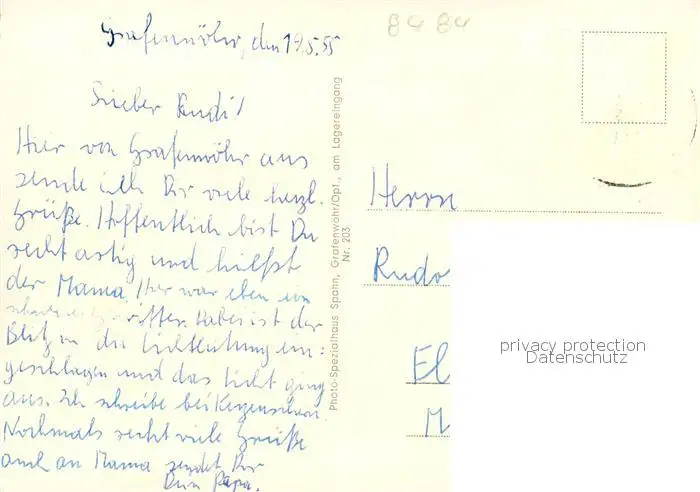 8484
Grafenwöhr, den 19.5.55
Lieber Rudi!
Hier von Grafenwöhr aus
sende ich Dir viele herzl.
Grüße. Hoffentlich bist Du
recht artig und hilfst
der Mama. Hier war eben ein
Gewitter. Dabei ist der
Blitz in die Lichtleitung ein:
geschlagen und das Licht ging
aus. Ich schreibe bei Kerzenschein.
Nochmals recht viele Grüße
auch an Mama sendet Dir
Dein Papa.
Photo-Spezialhaus Spahn, Grafenwöhr/Opf., am Lagereingang
Nr. 203
Herrn
Rudo
El
M
privacy protection
Datenschutz